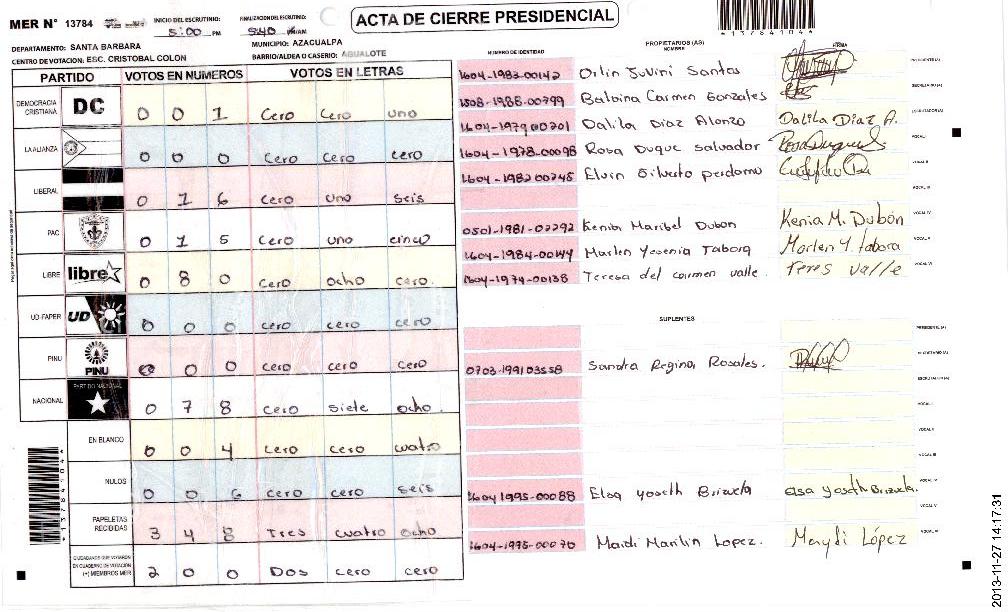 MER N° 13784
INICIO DEL ESCRUTINIO: 5:00 PM
FINALIZACION DEL ESCRUTINIO:
ACTA DE CIERRE PRESIDENCIAL
*13784104*
DEPARTAMENTO: SANTA BARBARA
MUNICIPIO: AZACUALPA
CENTRO DE VOTACION: ESC. CRISTOBAL COLON
BARRIO/ALDEA O CASERIO: AGUALOTE
PARTIDO VOTOS EN NUMEROS VOTOS EN LETRAS
DEMOCRACIA CRISTIANA DC 0 0 1 Cero Cero uno
LA ALIANZA 0 0 0 Cero Cero cero
LIBERAL 0 1 6 Cero uno seis
PAC 0 1 5 Cero uno cinco
LIBRE libre 0 8 0 Cero ocho cero.
UD-FAPER UD 0 0 0 cero cero cero
PINU PINU 0 0 0 cero cero cero
NACIONAL PARTIDO NACIONAL 0 7 8 cero siete ocho.
EN BLANCO 0 0 4 cero cero cuatro
NULOS 0 0 6 cero cero seis
PAPELETAS RECIBIDAS 3 4 8 Tres cuatro ocho
CIUDADANOS QUE VOTARON
EN CUADERNO DE VOTACIÓN
(+) MIEMBROS MER 2 0 0 Dos cero cero
NUMERO DE IDENTIDAD PROPIETARIOS (AS) NOMBRE FIRMA
1604-1983-00142 Orlin Juvini Santos PRESIDENTE (A)
1508-1988-00799 Balbina Carmen Gonzales SECRETARIO (A)
1604-1979-00201 Dalila Diaz Alonzo Dalila Diaz A. ESCRUTADOR (A)
1604-1978-00098 Rosa Duque salvador VOCAL I
1604-1982-00245 Elvin Silvesto perdomo VOCAL II
VOCAL III
0501-1981-02292 Kenia Maribel Dubon Kenia M. Dubón VOCAL IV
1604-1984-00144 Marlen Yesenia Tabora Marlen Y. tabora VOCAL V
1604-1974-00138 Teresa del carmen valle. Teres valle VOCAL VI
SUPLENTES
PRESIDENTE (A)
0703-199103558 Sandra Regina Rosales. SECRETARIO (A)
ESCRUTADOR (A)
VOCAL I
VOCAL II
VOCAL III
1604 1995-00088 Elsa yoseth Brizuela elsa yoseth Brizuela. VOCAL IV
VOCAL V
1604-1995-00070 Maidi Marilin Lopez. Maydi López VOCAL VI
*13784104*
2013-11-27 14:17:31